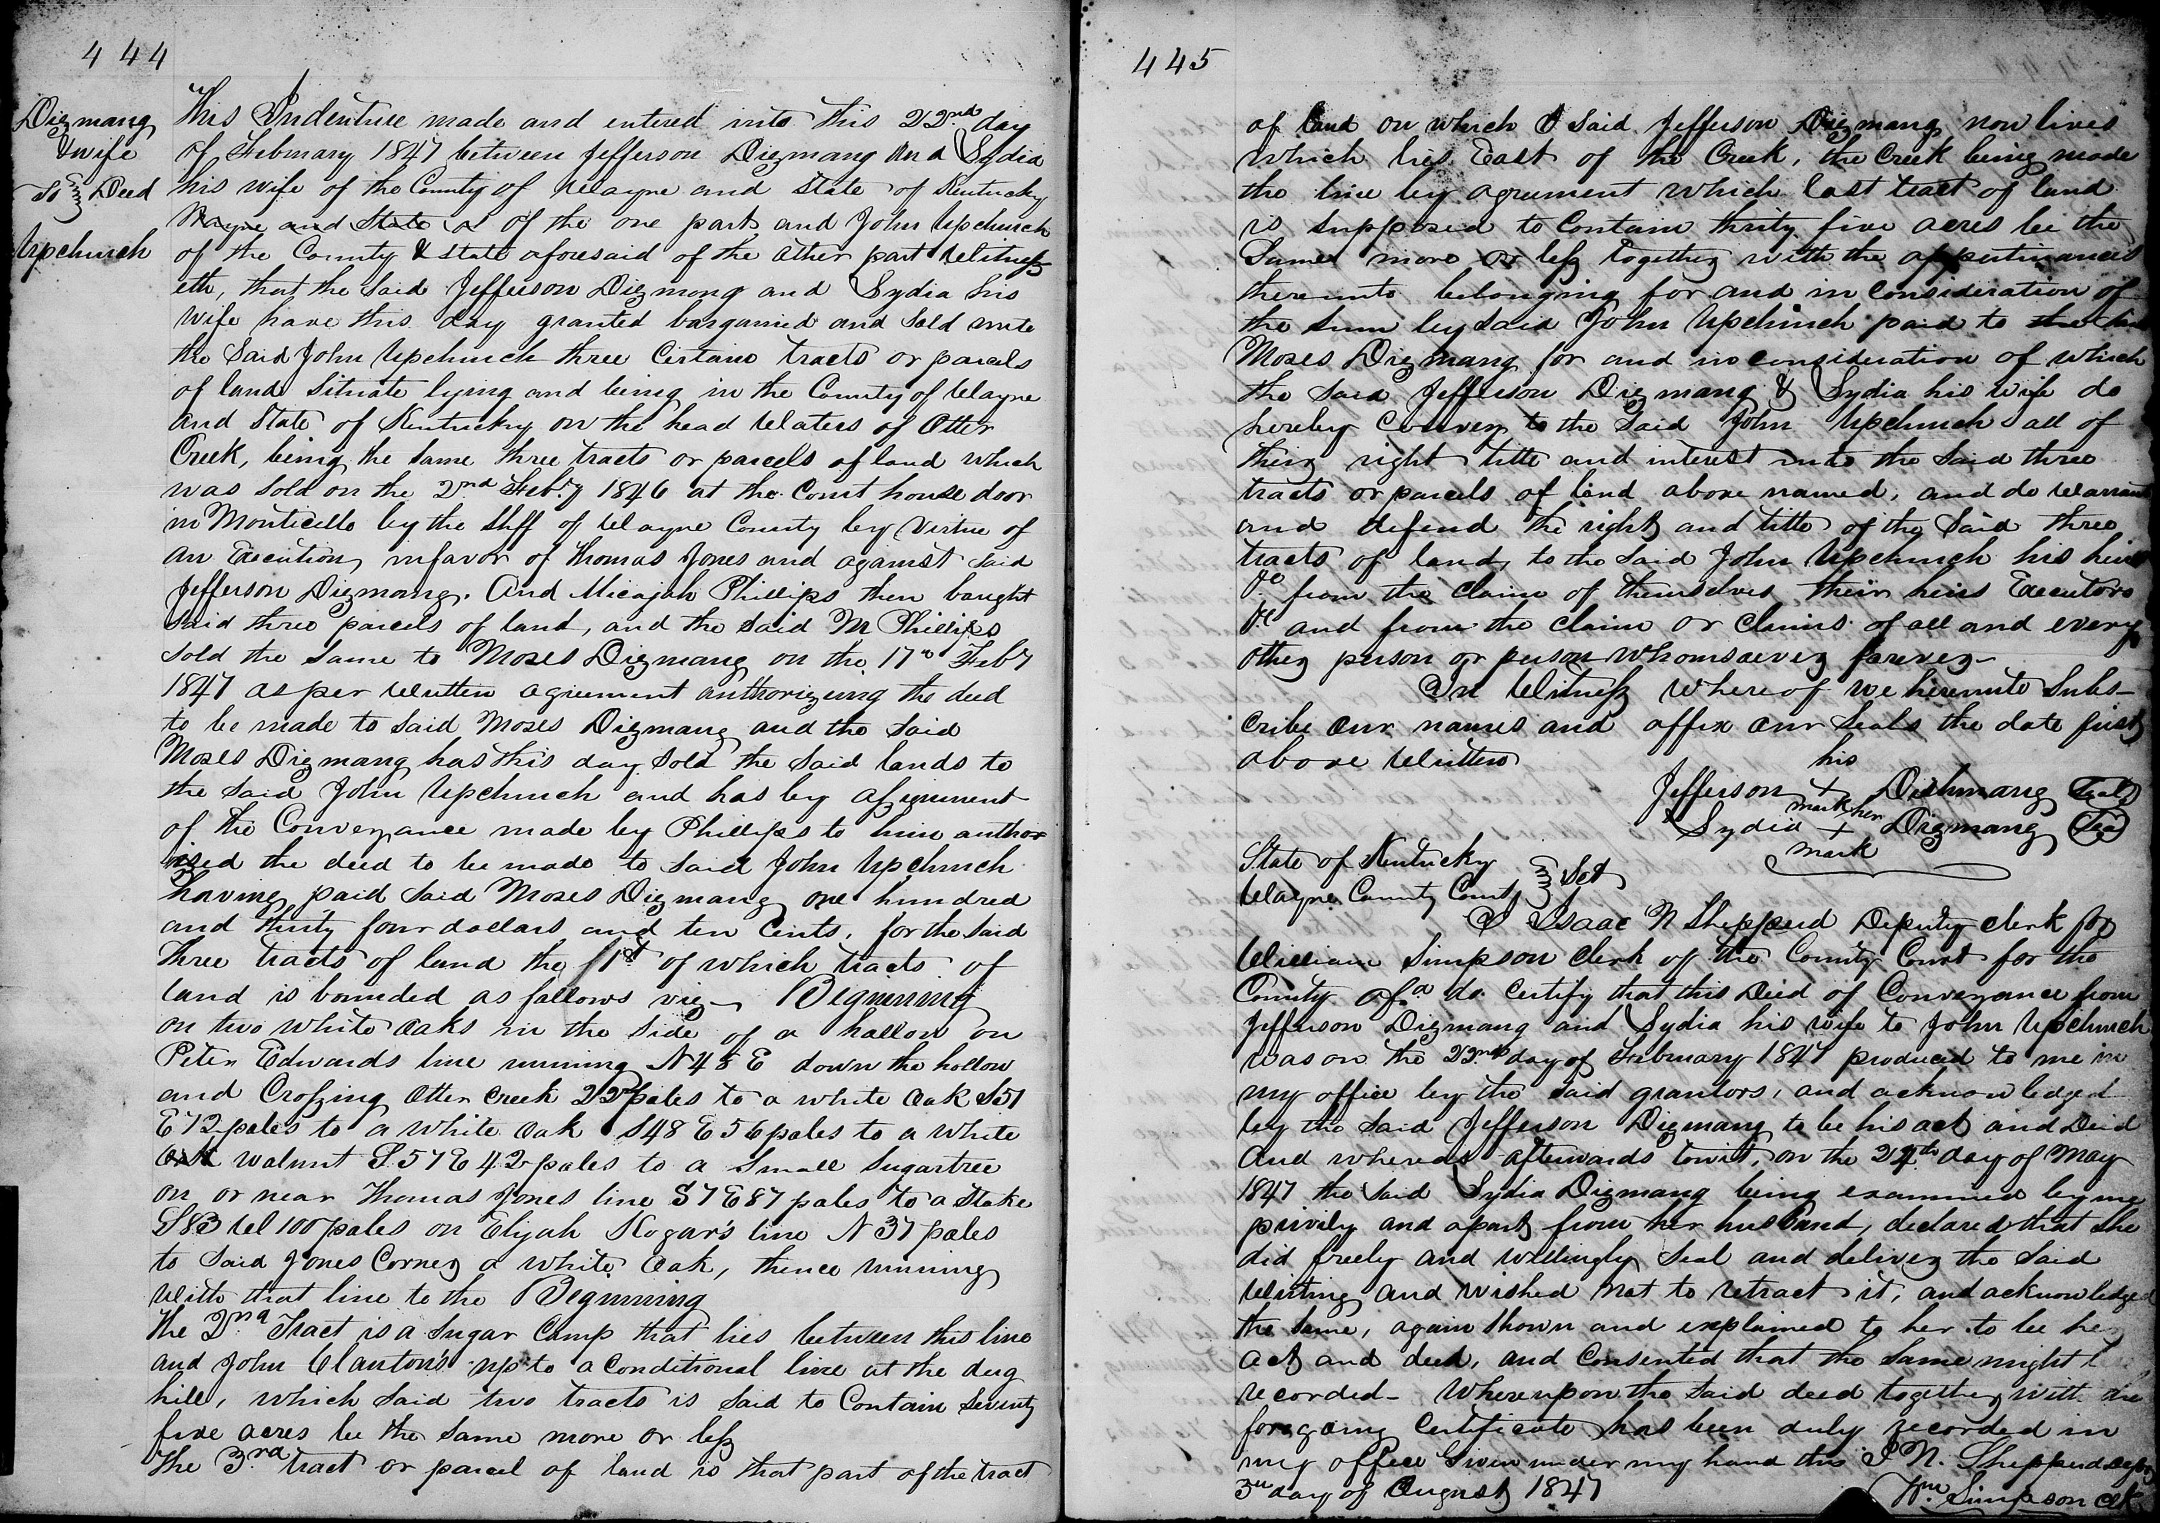 444
Dizmang
& wife
To } Deed
Upchurch
This Indenture made and entered into this 22nd day
of February 1847 between Jefferson Dizmang and Lydia
his wife of the County of Wayne and State of Kentucky
Wayne and State of of the one part and John Upchurch
of the County & State aforesaid of the other part Witness
eth, that the said Jefferson Dizmang and Lydia his
wife have this day granted bargained and sold unto
the said John Upchurch three certain tracts or parcels
of land situate lying and being in the County of Wayne
and State of Kentucky on the head waters of Otter
Creek, being the same three tracts or parcels of land which
was sold on the 2nd Feby 1846 at the Court house door
in Monticello by the Shff of Wayne County by virtue of
an Execution infavor of Thomas Jones and against said
Jefferson Dizmang. And Micajah Phillips then bought
said three parcels of land, and the said M Phillips
sold the same to Moses Dizmang on the 17th Feby
1847 as per written agreement authorizeing the deed
to be made to said Moses Dizmang and the said
Moses Dizmang has this day sold the said lands to
the said John Upchurch and has by assignment
of the Conveyance made by Phillips to him author
ized the deed to be made to said John Upchurch
having paid said Moses Dizmang one hundred
and thirty four dollars and ten Cents, for the said
three tracts of land the 1st of which tracts of
land is bounded as follows viz— Beginning
on two white oaks in the side of a hollow on
Peter Edwards line running N 48 E down the hollow
and Crossing Otter creek 22 poles to a white oak S 51
E 72 poles to a white oak S 48 E 56 poles to a white
oak walnut S. 57 E 42 poles to a small sugartree
on or near Thomas Jones line S 7 E 87 poles to a stake
S 83 W 100 poles on Elijah Kogar's line N 37 poles
to said Jones Corner a white oak, thence running
with that line to the Beginning
The 2nd Tract is a sugar Camp that lies between this line
and John Clanton's up to a Conditional line at the dug
hill, which said two tracts is said to Contain seventy
five acres be the same more or less
The 3rd tract or parcel of land is that part of the tract
445
of land on which I said Jefferson Dizmang now lives
which lies East of the Creek, the Creek being made
the line by agreement which last tract of land
is supposed to Contain thirty five acres be the
same more or less together with the appertinances
thereunto belonging for and in consideration of
the sum by said John Upchurch paid to the said
Moses Dizmang for and in consideration of which
the said Jefferson Dizmang & Lydia his wife do
hereby Convey to the said John Upchurch all of
their right title and interest unto the said three
tracts or parcels of land above named, and do warrant
and defend the right and title of the said three
tracts of land to the said John Upchurch his heirs
&c from the claim of themselves their heirs Executors
&c and from the claim or claims of all and every
other person or person whomsoever forever—
In Witness whereof we hereunto subs-
cribe our names and affix our seals the date first
above written
his
Jefferson + Dishmang Seal
mark her
Lydia + Dizmang Seal
mark
State of Kentucky
Wayne County Court } Sct
I Isaac N Shepperd Deputy clerk for
William Simpson Clerk of the County Court for the
County afsd do certify that this Deed of Conveyance from
Jefferson Dizmang and Lydia his wife to John Upchurch
was on the 22nd day of February 1847 produced to me in
my office by the said grantors, and acknowledged
by the said Jefferson Dizmang to be his act and Deed
And whereas afterwards towit, on the 24th day of May
1847 the said Lydia Dizmang being examined by me
privily and apart from her husband, declared that she
did freely and willingly seal and deliver the said
writing and wished not to retract it, and acknowledged
the same, again shown and explained to her to be her
act and deed, and Consented that the same might be
recorded— Whereupon the said deed together with the
foregoing certificate has been duly recorded in
my office Given under my hand this I N. Shepperd depy
3rd day of August 1847 Wm Simpson Clk